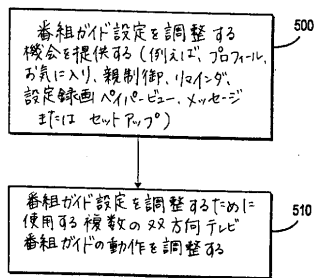 番組ガイド設定を調整する
機会を提供する(例えば、プロフィール、
お気に入り、親制御、リマインダ、
設定録画 ペイパービュー、メッセージ
または セットアップ)
500
番組ガイド設定を調整するために
使用する複数の双方向テレビ
番組ガイドの動作を調整する
510